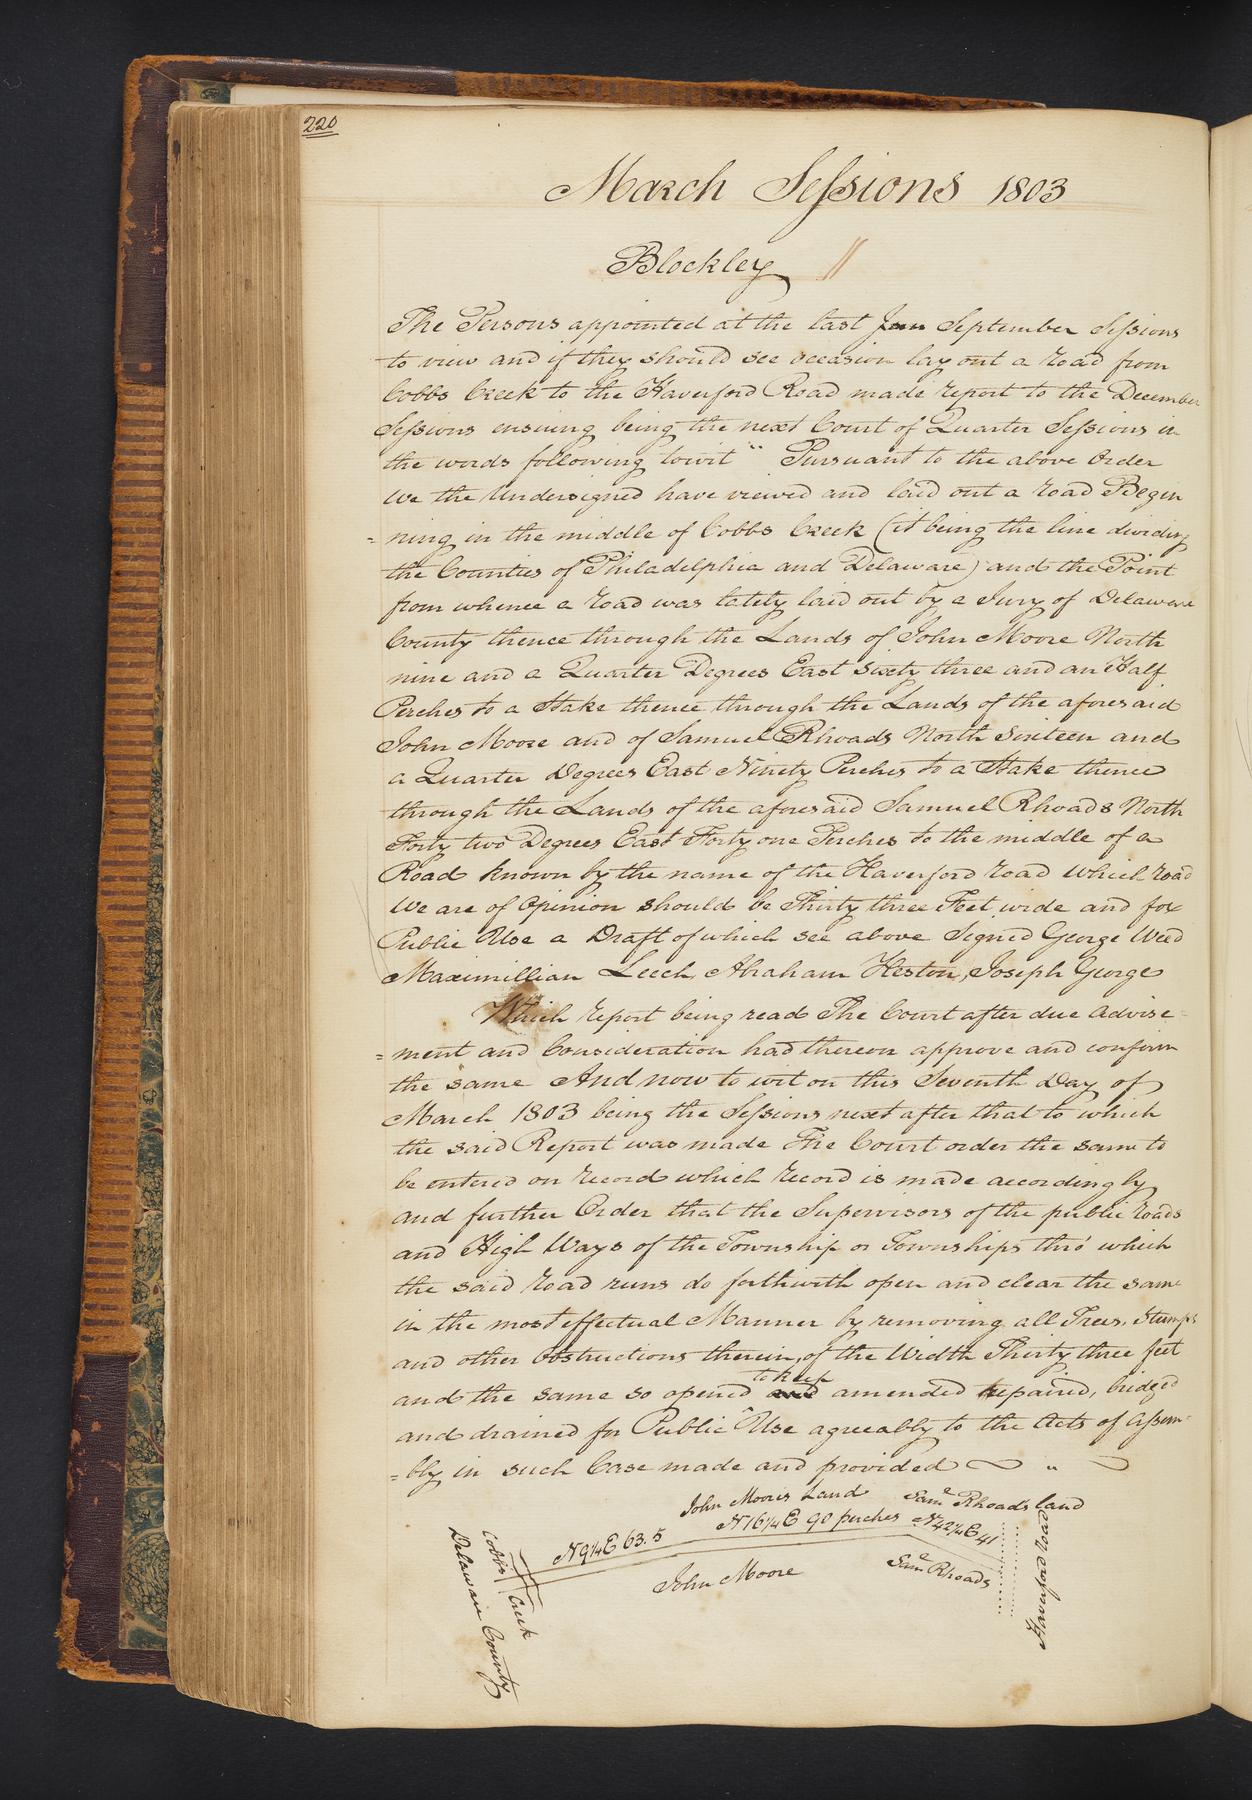 220
March Sessions 1803
Blockley //
The Persons appointed at the last Jun September Sessions
to view and if they should see occasion lay out a road from
Cobbs Creek to the Haverford Road made report to the December
Sessions ensuing being the next Court of Quarter Sessions in
the words following towit " Pursuant to the above Order
We the Undersigned have viewed and laid out a road Begin
=ning in the middle of Cobbs Creek (it being the line dividing
the Counties of Philadelphia and Delaware) and the Point
from whence a road was lately laid out by a Jury of Delaware
County thence through the Lands of John Moore North
nine and a Quarter Degrees East sixty three and an Half
Perches to a Stake thence through the Lands of the aforesaid
John Moore and of Samuel Rhoads North Sixteen and
a Quarter Degrees East Ninety Perches to a Stake thence
through the Lands of the aforesaid Samuel Rhoads North
Forty two Degrees East Forty one Perches to the middle of a
Road known by the name of the Haverford road Which road
We are of Opinion should be Thirty three Feet wide and for
Public Use a Draft of which see above Signed George Weed
Maximillian Leech Abraham Heston, Joseph George
Which report being read The Court after due Advise=
=ment and Consideration had thereon approve and confirm
the same And now to wit on this Seventh Day of
March 1803 being the Sessions next after that to which
the said Report was made The Court order the same to
be entered on record which record is made accordingly
and further Order that the Supervisors of the public roads
and High Ways of the Township or Townships thro' which
the said road runs do forthwith open and clear the same
in the most effectual Manner by removing all Trees, Stumps
and other Obstructions therein, of the Width Thirty three feet
to keep
and the same so opened and amended repaired, bridged
and drained for Public Use agreeably to the Acts of Assem=
=bly in such Case made and provided "
John Moores Land
Saml Rhoads land
N 9¼ E 63.5
N 16¼ E 90 perches
N 42¼ E 41
John Moore
Saml Rhoads
Haverford road
Cobbs Creek
Delaware County